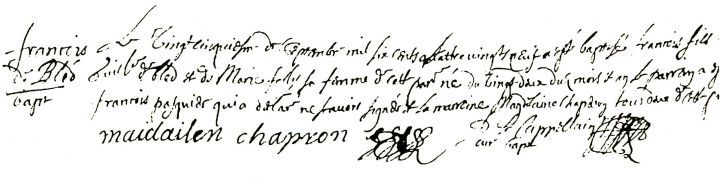 francois
de Bled
bapt
Le vingt cinquiesme de septembre mil six cents quattre vingt neuf a esté baptisé francois fils
Guill de bled et de Marie sa femme de cett par né du vingt deux du mois et an le parrain a
francois pasquide qui a declaré ne scavoir signer et la marenne Magdelaine Chapron tous deux de cett
maudailen chapron
D Le Cappellain
curé bapt